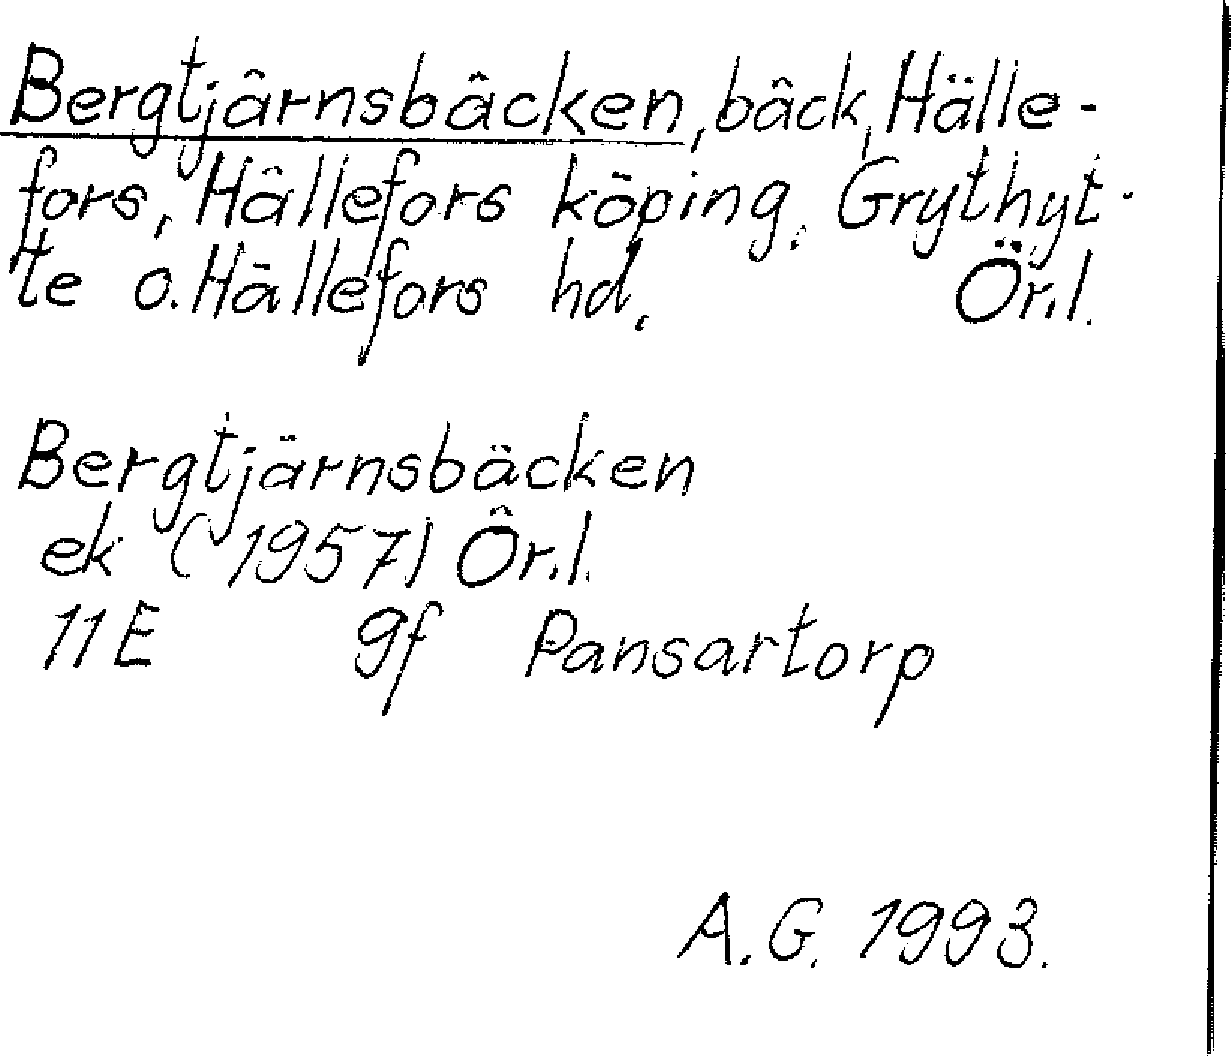 Bergtjärnsbäcken, bäck, Hälle-
fors, Hällefors köping, Grythyt-
te o. Hällefors hd. Ör.l.
Bergtjärnsbäcken
ek (1957) Ör.l.
11E 9f Pansartorp
A.G. 1993.